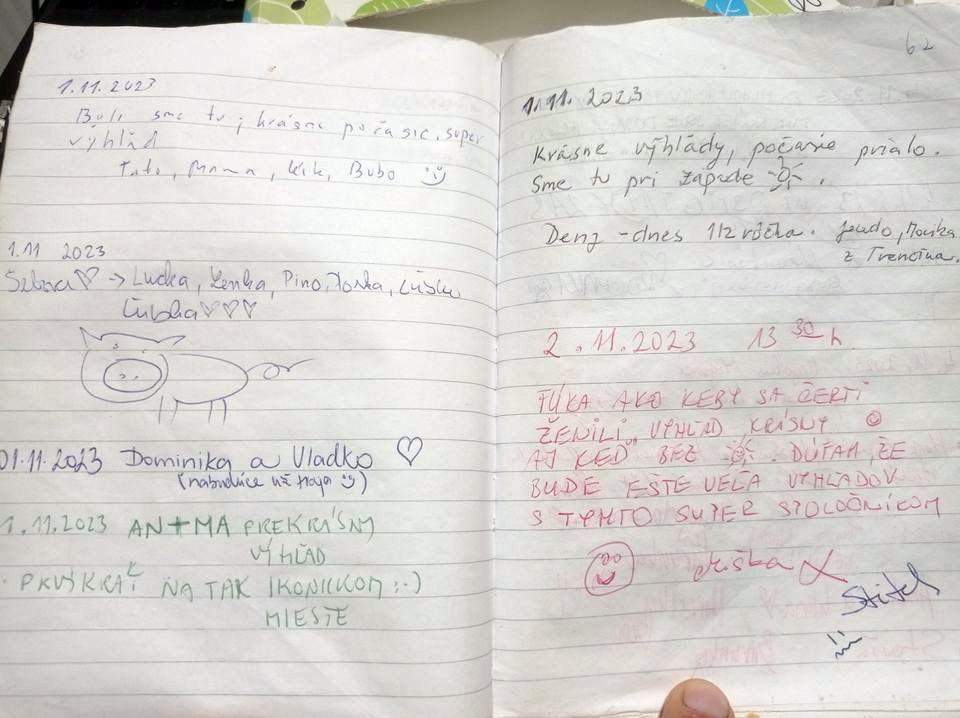 1.11.2023
Boli sme tu, krásne počasie, super
výhľad
Tato, Mama, Kik, Bubo
1.11 2023
→ Lucka, Lenka, Pino,
Ľubka
01.11.2023 Dominika a Vladko
(nabudúce už traja)
1.11.2023 AN+MA PREKRÁSNY
VÝHĽAD
PRVÝKRÁT NA TAK IKONICKOM :-)
MIESTE
62
1.11. 2023
Krásne výhľády, počasie prialo.
Sme tu pri západe.
- dnes 112 výročka. Monika
z Trenčína.
2.11.2023 13 30 h.
FÚKA AKO KEBY SA ČERTI
ŽENILI. VÝHĽAD KRÁSNY
AJ KEĎ BEZ. DÚFAM, ŽE
BUDE EŠTE VEĽA VÝHĽADOV
S TÝMTO SUPER SPOLOČNÍKOM
Miška
Stitch